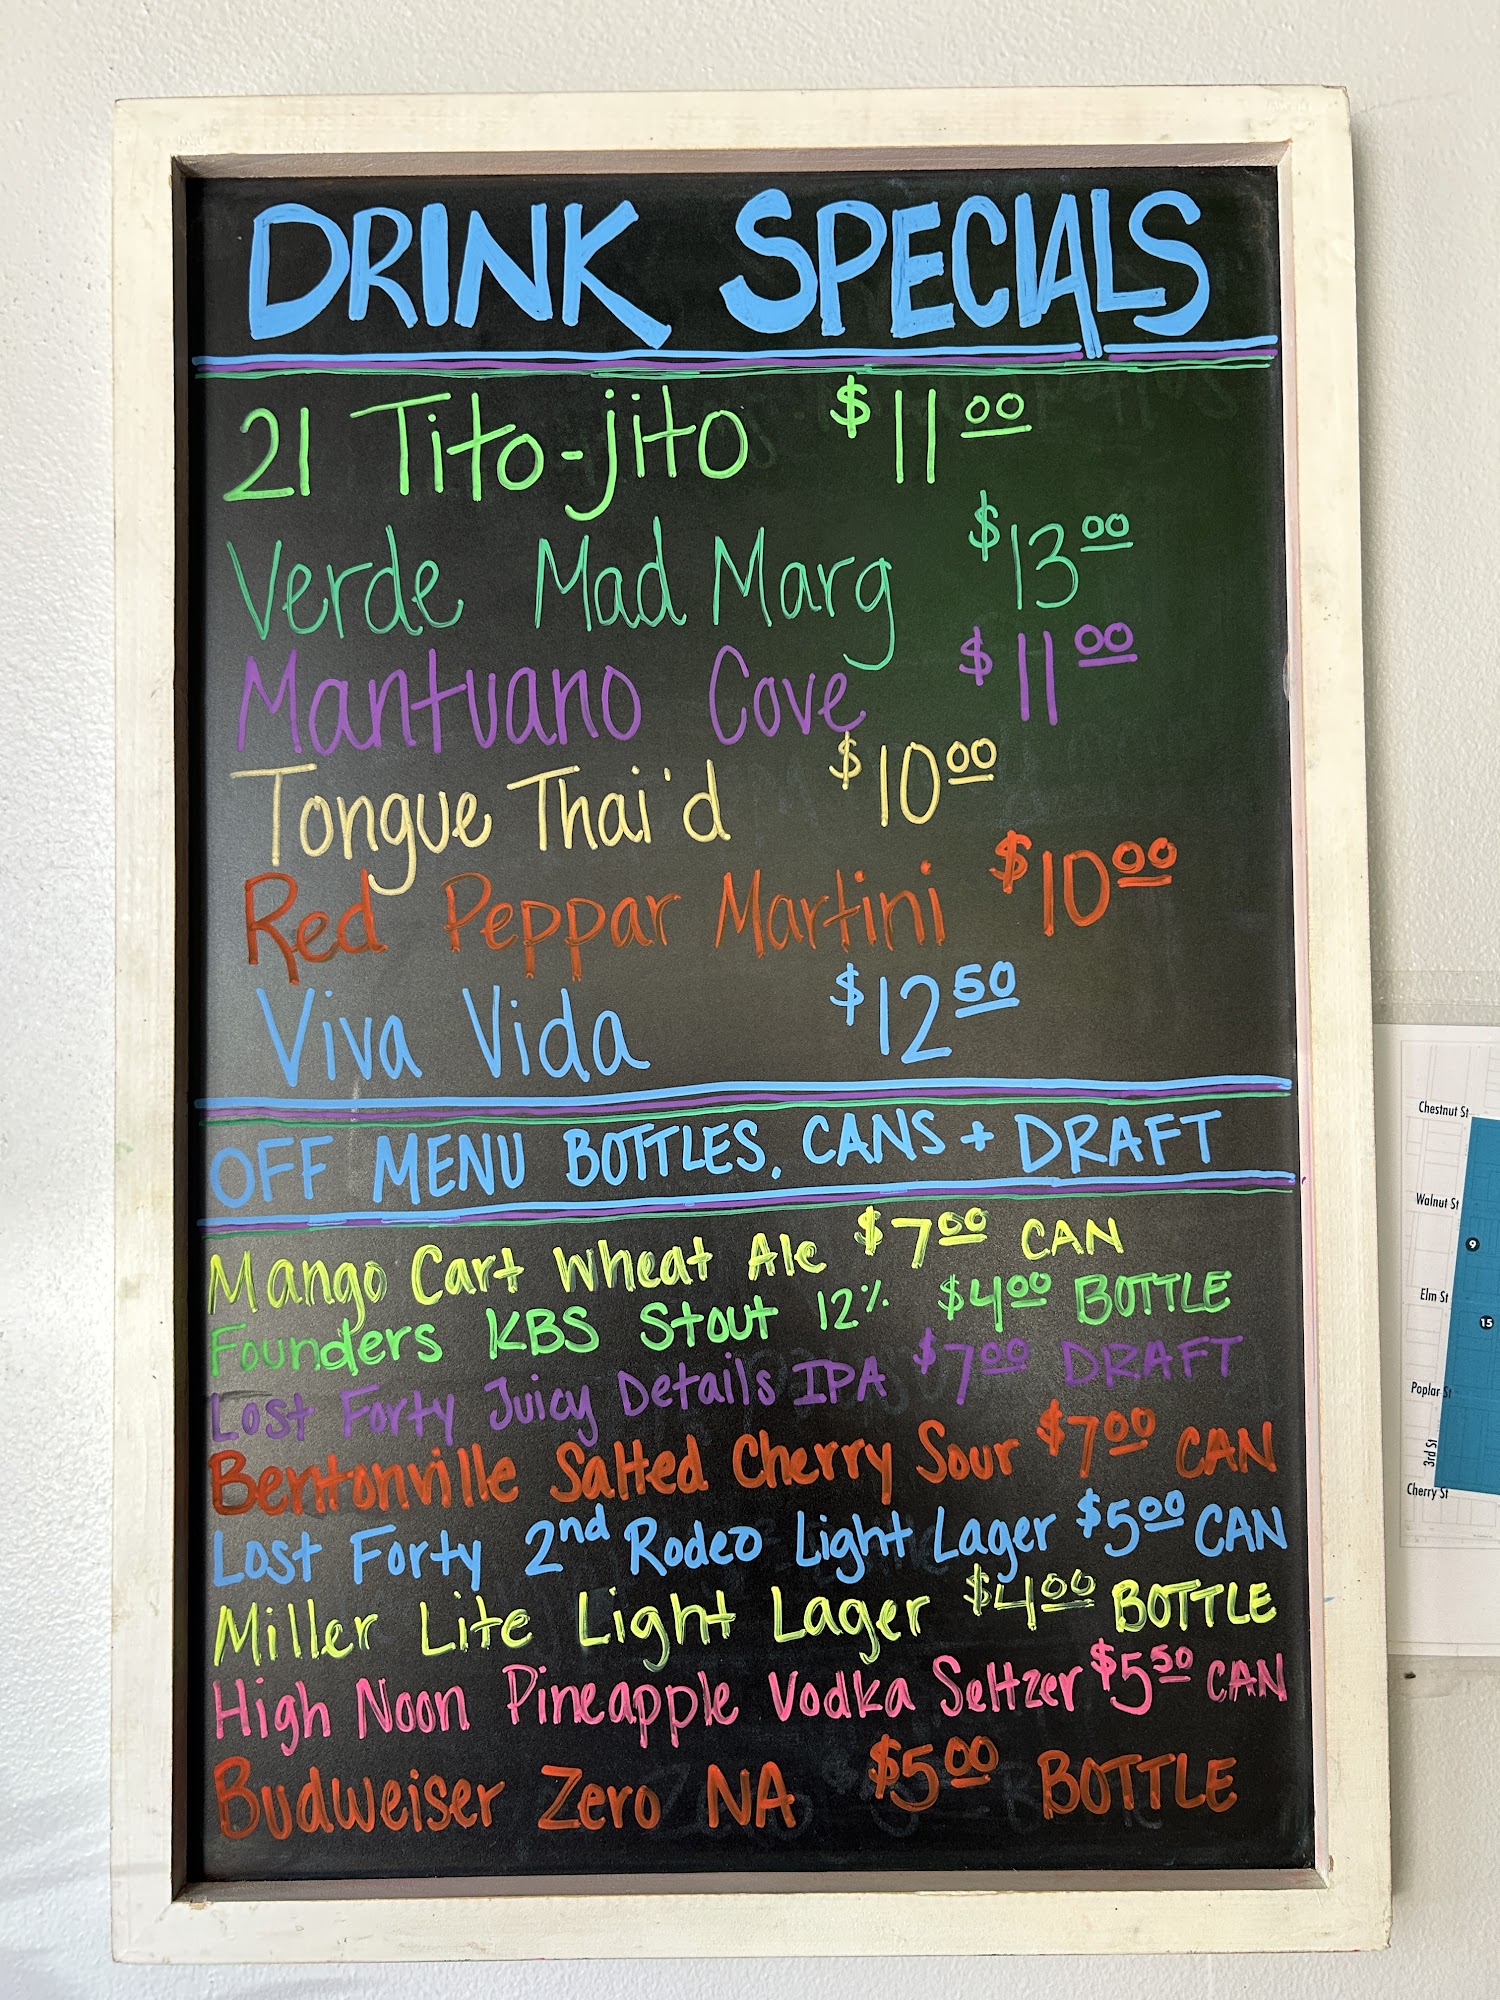 DRINK SPECIALS
21 Tito-jito $11 00
Verde Mad Marg $13 00
Mantuano Cove $11 00
Tongue Thai'd $10 00
Red Peppar Martini $10 00
Viva Vida $12 50
OFF MENU BOTTLES, CANS + DRAFT
Mango Cart Wheat Ale $7 00 CAN
Founders KBS Stout 12% $4 00 BOTTLE
Lost Forty Juicy Details IPA $7 00 DRAFT
Bentonville Salted Cherry Sour $7 00 CAN
Lost Forty 2nd Rodeo Light Lager $5 00 CAN
Miller Lite Light Lager $4 00 BOTTLE
High Noon Pineapple Vodka Seltzer $5 50 CAN
Budweiser Zero NA $5 00 BOTTLE
Chestnut St
Walnut St
9
Elm St
15
Poplar St
3rd St
Cherry St